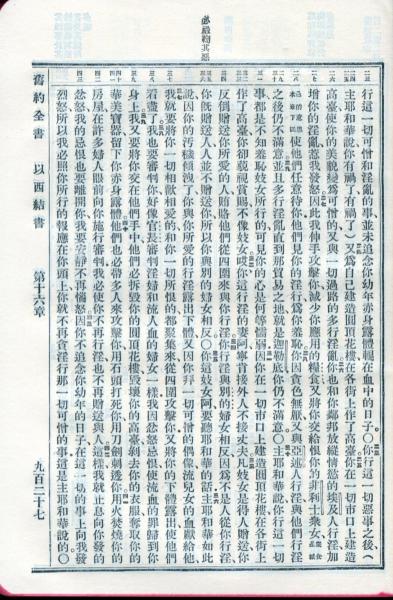 必嚴鞫其罪
行這一切可憎和淫亂的事並未追念你幼年赤身露體輥在血中的日子〇你行這一切惡事之後(
主耶和華說你有禍了有禍了)又爲自己建造圓頂花樓在各街上作了高臺你在一切市口上建造
高臺使你的美貌變爲可憎的又與一切過路的多行淫亂你也和你鄰邦放縱情慾的埃及人行淫加
增你的淫亂惹我發怒因此我伸手攻擊你減少你應用的糧食又將你交給恨你的非利士衆女
使他們任意待你他們見你的淫行爲你羞恥你因貪色無厭又與亞述人行淫與他們行淫
之後仍不滿意並且多行淫亂直到那貿易之地就是迦勒底你仍不滿意〇主耶和華說你行這一切
事都是不知羞恥妓女所行的可見你的心是何等懦弱因你在一切市口上建造圓頂花樓在各街上
作了高臺你卻藐視賞賜不像妓女哎你這行淫的妻阿寧肯接外人不接丈夫凡妓女是得人贈送你
反倒贈送你所愛的人賄賂他們從四圍來與你行淫你行淫與別的婦女相反因爲不是人從你行淫
你旣贈送人人並不贈送你所以你與別的婦女相反〇你這妓女阿要聽耶和華的話主耶和華如此
說因你的汚穢傾洩了你與你所愛的行淫露出下體又因你拜一切可憎的偶像流兒女的血獻給他
我就要將你一切相歡相愛的和你一切所恨的都聚集來從四圍攻擊你又將你的下體露出使他們
看盡了我也要審判你好像官長審判淫婦和流人血的婦女一樣我因忿怒忌恨使流血的罪歸到你
身上我又要將你交在他們手中他們必拆毁你的圓頂花樓毁壞你的高臺剝去你的衣服奪取你的
華美寶器留下你赤身露體他們也必帶多人來攻擊你用石頭打死你用刀劍刺透你用火焚燒你的
房屋在許多婦人眼前向你施行審判我必使你不再行淫也不再贈送與人這樣我就止息向你發的
忿怒我的忌恨也要離開你我要安靜不再惱怒因你不追念你幼年的日子在這一切的事上向我發
烈怒所以我必照你所行的報應在你頭上你就不再貪淫行那一切可憎的事這是主耶和華說的〇
舊約全書 以西結書 第十六章 九百二十七